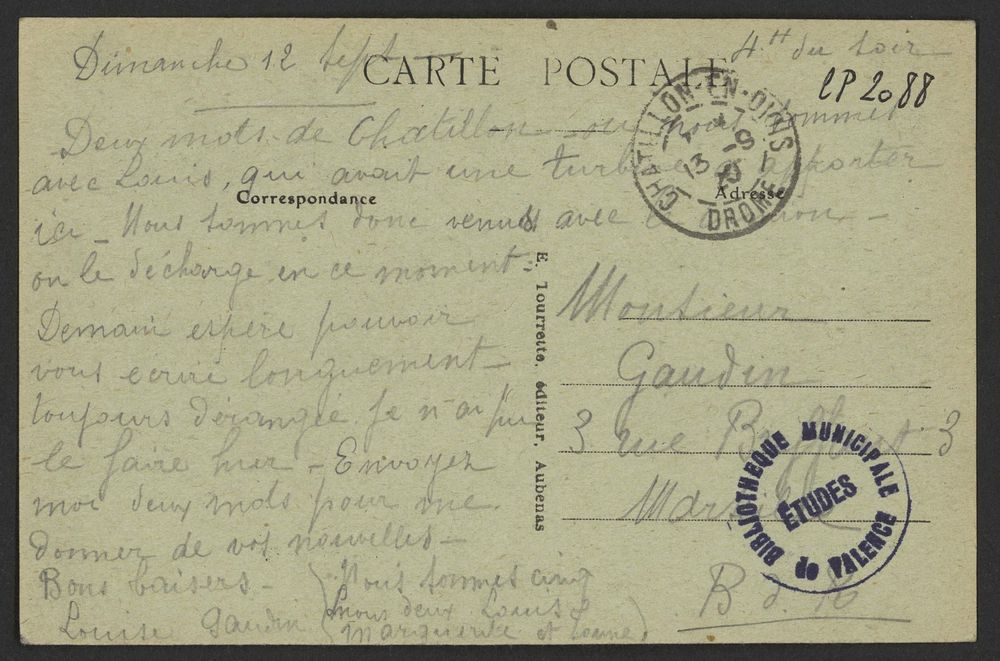 Dimanche 12 Sept
4H du soir
CARTE POSTALE
CP 2088
CHATILLON-EN-DIOIS
13
DROME
Deux mots de Chatillon ou nous sommes
avec Louis, qui avait une turbine a apporter
ici - Nous sommes donc venus avec le camion -
on le décharge en ce moment.
Demain espère pouvoir
vous écrire longuement -
toujours dérangée je n'ai pu
le faire hier - Envoyez
moi deux mots pour me
donner de vos nouvelles -
Bons baisers -
Louise Gaudin
Nous sommes cinq
nous deux Louis
Marguerite et
Correspondance
Adresse
E. Tourrette, éditeur, Aubenas
Monsieur
Gaudin
3 rue 3
Marseille
B d. R
BIBLIOTHEQUE MUNICIPALE
ÉTUDES
de VALENCE